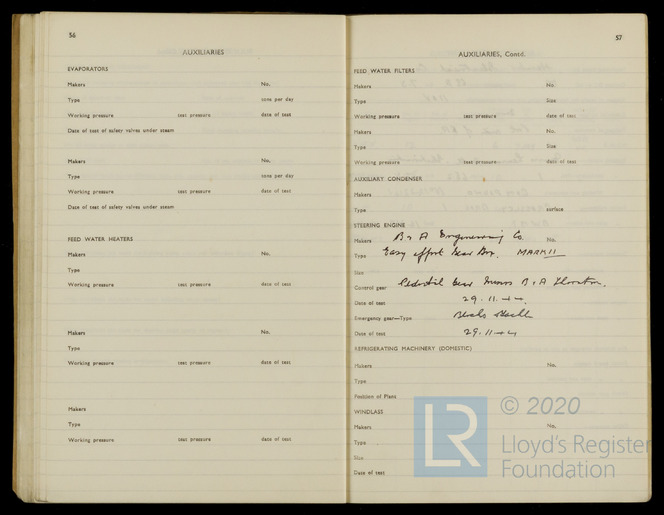 56
AUXILIARIES
EVAPORATORS
Makers No.
Type tons per day
Working pressure test pressure date of test
Date of test of safety valves under steam
Makers No.
Type tons per day
Working pressure test pressure date of test
Date of test of safety valves under steam
FEED WATER HEATERS
Makers No.
Type
Working pressure test pressure date of test
Makers No.
Type
Working pressure test pressure date of test
Makers
Type
Working pressure test pressure date of test
57
AUXILIARIES, Contd.
FEED WATER FILTERS
Makers No.
Type Size
Working pressure test pressure date of test
Makers No.
Type Size
Working pressure test pressure date of test
AUXILIARY CONDENSER
Makers
Type surface
STEERING ENGINE
Makers B & A Engineering Co. No.
Type Easy effort Gear Box. MARK II
Size
Control gear Gear B & A
Date of test 29.11.
Emergency gear—Type
Date of test 29.11
REFRIGERATING MACHINERY (DOMESTIC)
Makers No.
Type
Position of Plant
WINDLASS
Makers No.
Type
Size
Date of test
LR
© 2020
Lloyd's Register
Foundation